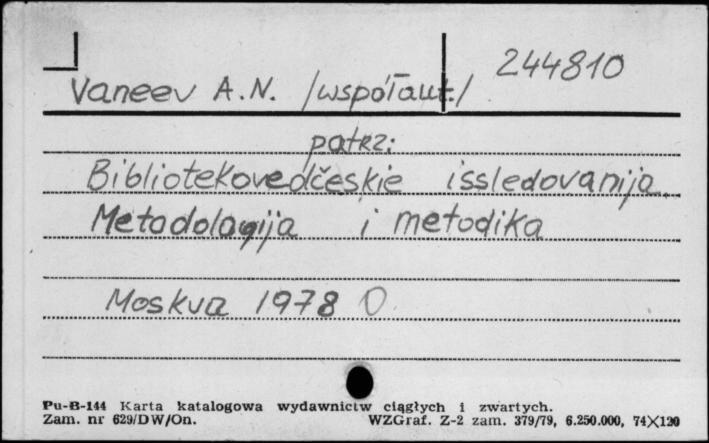 244810
Vaneev A.N. /współaut./
patrz:
Bibliotekovedčeskie issledovanija.
Metodologija i metodika
Moskva 1978 O
Pu-B-144 Karta katalogowa wydawnictw ciągłych i zwartych.
Zam. nr 629/DW/On. WZGraf. Z-2 zam. 379/79, 6.250.000, 74×120